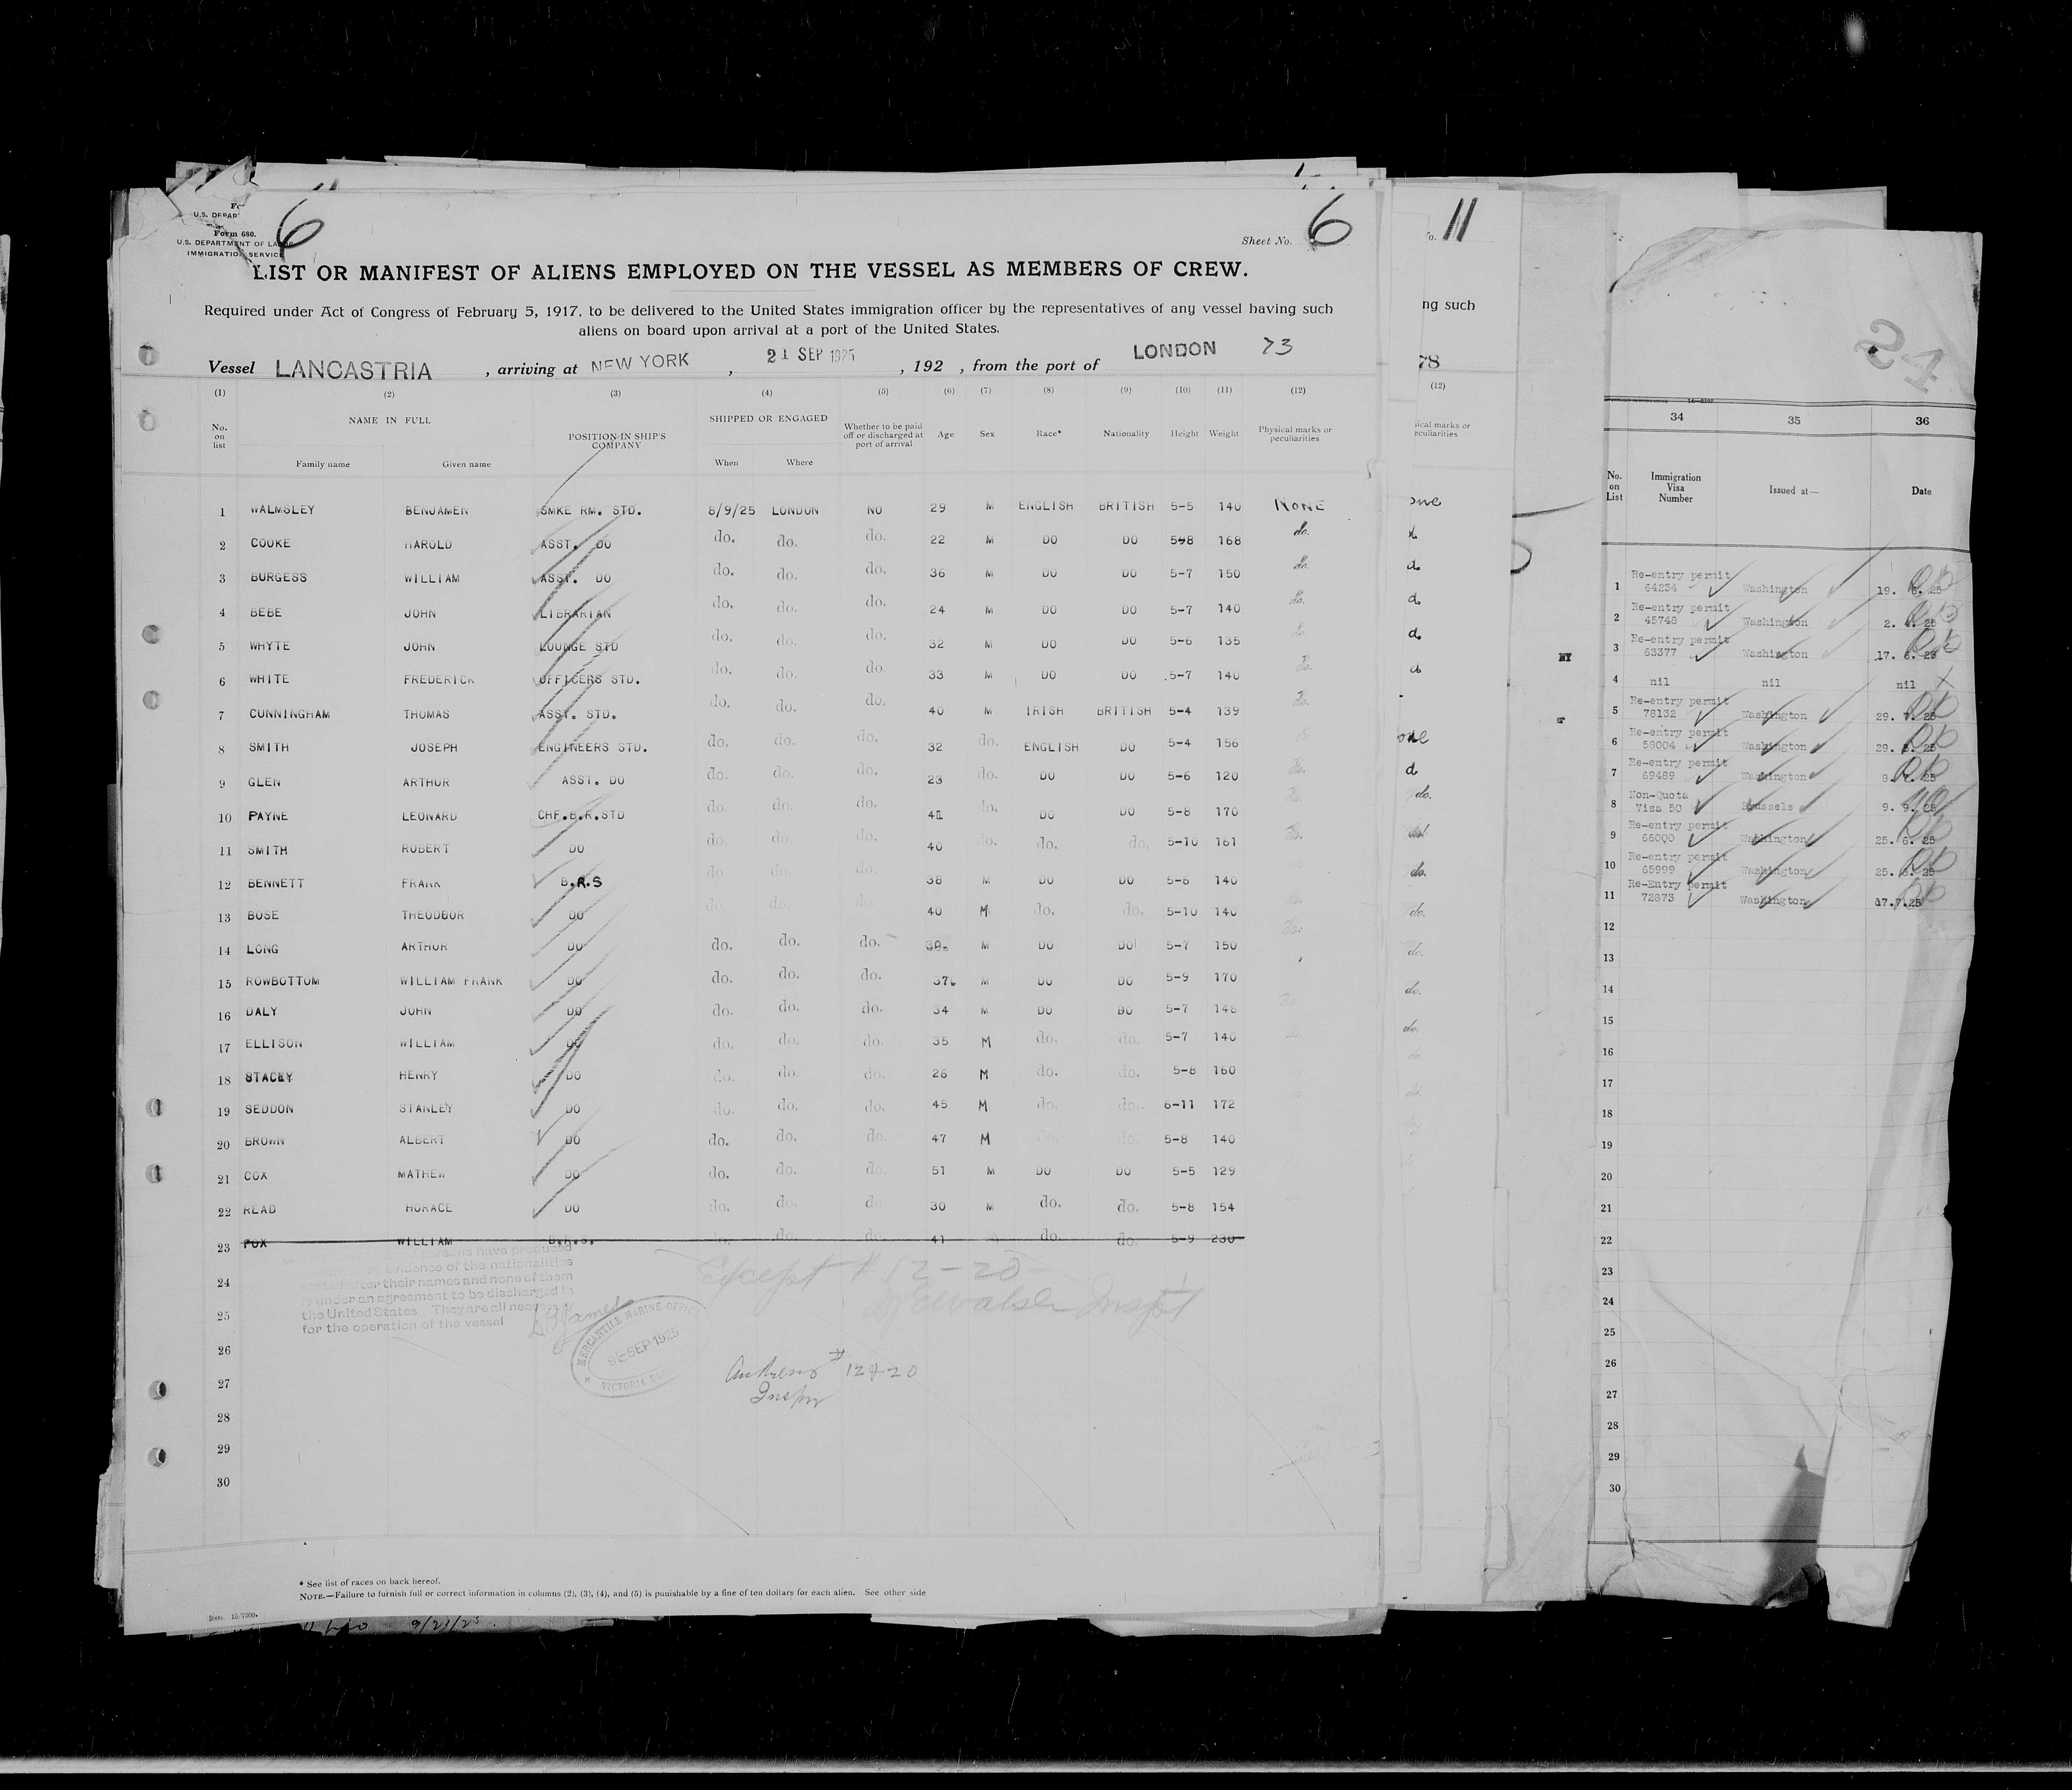 Form 680.
U.S. DEPARTMENT OF LABOR
IMMIGRATION SERVICE
6
Sheet No. 6
LIST OR MANIFEST OF ALIENS EMPLOYED ON THE VESSEL AS MEMBERS OF CREW.
Required under Act of Congress of February 5, 1917, to be delivered to the United States immigration officer by the representatives of any vessel having such
aliens on board upon arrival at a port of the United States.
Vessel LANCASTRIA , arriving at NEW YORK , 21 SEP 1925 , 192 , from the port of LONDON 73
(1) (2) (3) (4) (5) (6) (7) (8) (9) (10) (11) (12)
No. on list NAME IN FULL Family name Given name POSITION IN SHIP'S COMPANY SHIPPED OR ENGAGED When Where Whether to be paid off or discharged at port of arrival Age Sex Race* Nationality Height Weight Physical marks or peculiarities
1 WALMSLEY BENJAMEN SMKE RM. STD. 8/9/25 LONDON NO 29 M ENGLISH BRITISH 5-5 140 NONE
2 COOKE HAROLD ASST. DO do. do. do. 22 M DO DO 5-8 168 do.
3 BURGESS WILLIAM ASST. DO do. do. do. 36 M DO DO 5-7 150 do.
4 BEBE JOHN LIBRARIAN do. do. do. 24 M DO DO 5-7 140 do.
5 WHYTE JOHN LOUNGE STD do. do. do. 32 M DO DO 5-6 135 do.
6 WHITE FREDERICK OFFICERS STD. do. do. do 33 M DO DO 5-7 140 Do.
7 CUNNINGHAM THOMAS ASST. STD. do. do. do. 40 M IRISH BRITISH 5-4 139 Do.
8 SMITH JOSEPH ENGINEERS STD. do. do. do. 32 do. ENGLISH DO 5-4 156
9 GLEN ARTHUR ASST. DO do. do. do. 23 do. DO DO 5-6 120 Do.
10 PAYNE LEONARD CHF.B.R.STD do. do. do. 41 do. DO DO 5-8 170
11 SMITH ROBERT DO do. do. do. 40 do. do. do. 5-10 161 Do.
12 BENNETT FRANK B.R.S do. do. do. 38 M DO DO 5-6 140
13 BOSE THEODOOR DO do. do. do. 40 M do. do. 5-10 140
14 LONG ARTHUR DO do. do. do. M DO DO 5-7 150
15 ROWBOTTOM WILLIAM FRANK DO do. do. do. 37 M DO DO 5-9 170
16 DALY JOHN DO do. do. do. 34 M DO DO 5-7 148
17 ELLISON WILLIAM DO do. do. do. 35 M do. do. 5-7 140
18 STACEY HENRY DO do. do. do. 26 M do. do. 5-8 160
19 SEDDON STANLEY DO do. do. do. 45 M do. do. 6-11 172
20 BROWN ALBERT DO do. do. do. 47 M do. do. 5-8 140
21 COX MATHEW DO do. do. do. 51 M DO DO 5-5 129
22 READ HORACE DO do. do. do. 30 M do. do. 5-8 154
23 FOX WILLIAM B.R.S. do. do. do. 41 do. do. 5-9 230
24
25
26
27
28
29
30
persons have produced
evidence of the nationalities
stated after their names and none of them
is under an agreement to be discharged in
the United States. They are all necessary
for the operation of the vessel
MERCANTILE MARINE OFFICE
SEP 1925
VICTORIA DOCKS
Except # 12-20
Inspt
12 & 20
Inspr
* See list of races on back hereof.
NOTE.—Failure to furnish full or correct information in columns (2), (3), (4), and (5) is punishable by a fine of ten dollars for each alien. See other side
9/21/25
11
ng such
78
(12)
ical marks or
eculiarities
34 35 36
No. on List Immigration Visa Number Issued at— Date
1 Re-entry permit 64234 Washington 19. 6. 25
2 Re-entry permit 45748 Washington 2. 4. 25
3 Re-entry permit 63377 Washington 17. 6. 25
4 nil nil nil
5 Re-entry permit 78132 Washington 29. 7. 25
6 Re-entry permit 58004 Washington 29. 5. 25
7 Re-entry permit 69489 Washington 8. 7. 25
8 Non-Quota Visa 50 Brussels 9. 9. 25
9 Re-entry permit 66000 Washington 25. 6. 25
10 Re-entry permit 65999 Washington 25. 6. 25
11 Re-Entry permit 72873 Washington 17.7.25
12
13
14
15
16
17
18
19
20
21
22
23
24
25
26
27
28
29
30